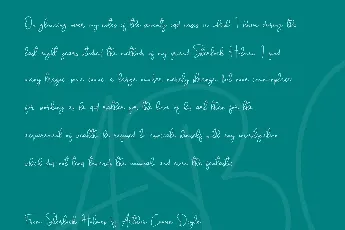 On glancing over my notes of the seventy odd cases in which I have during the
last eight years studied the methods of my friend Sherlock Holmes, I find
many tragic, some comic, a large number merely strange, but none commonplace;
for, working as he did rather for the love of his art than for the
acquirement of wealth, he refused to associate himself with any investigation
which did not tend towards the unusual, and even the fantastic.
From Sherlock Holmes by Arthur Conan Doyle
ABC